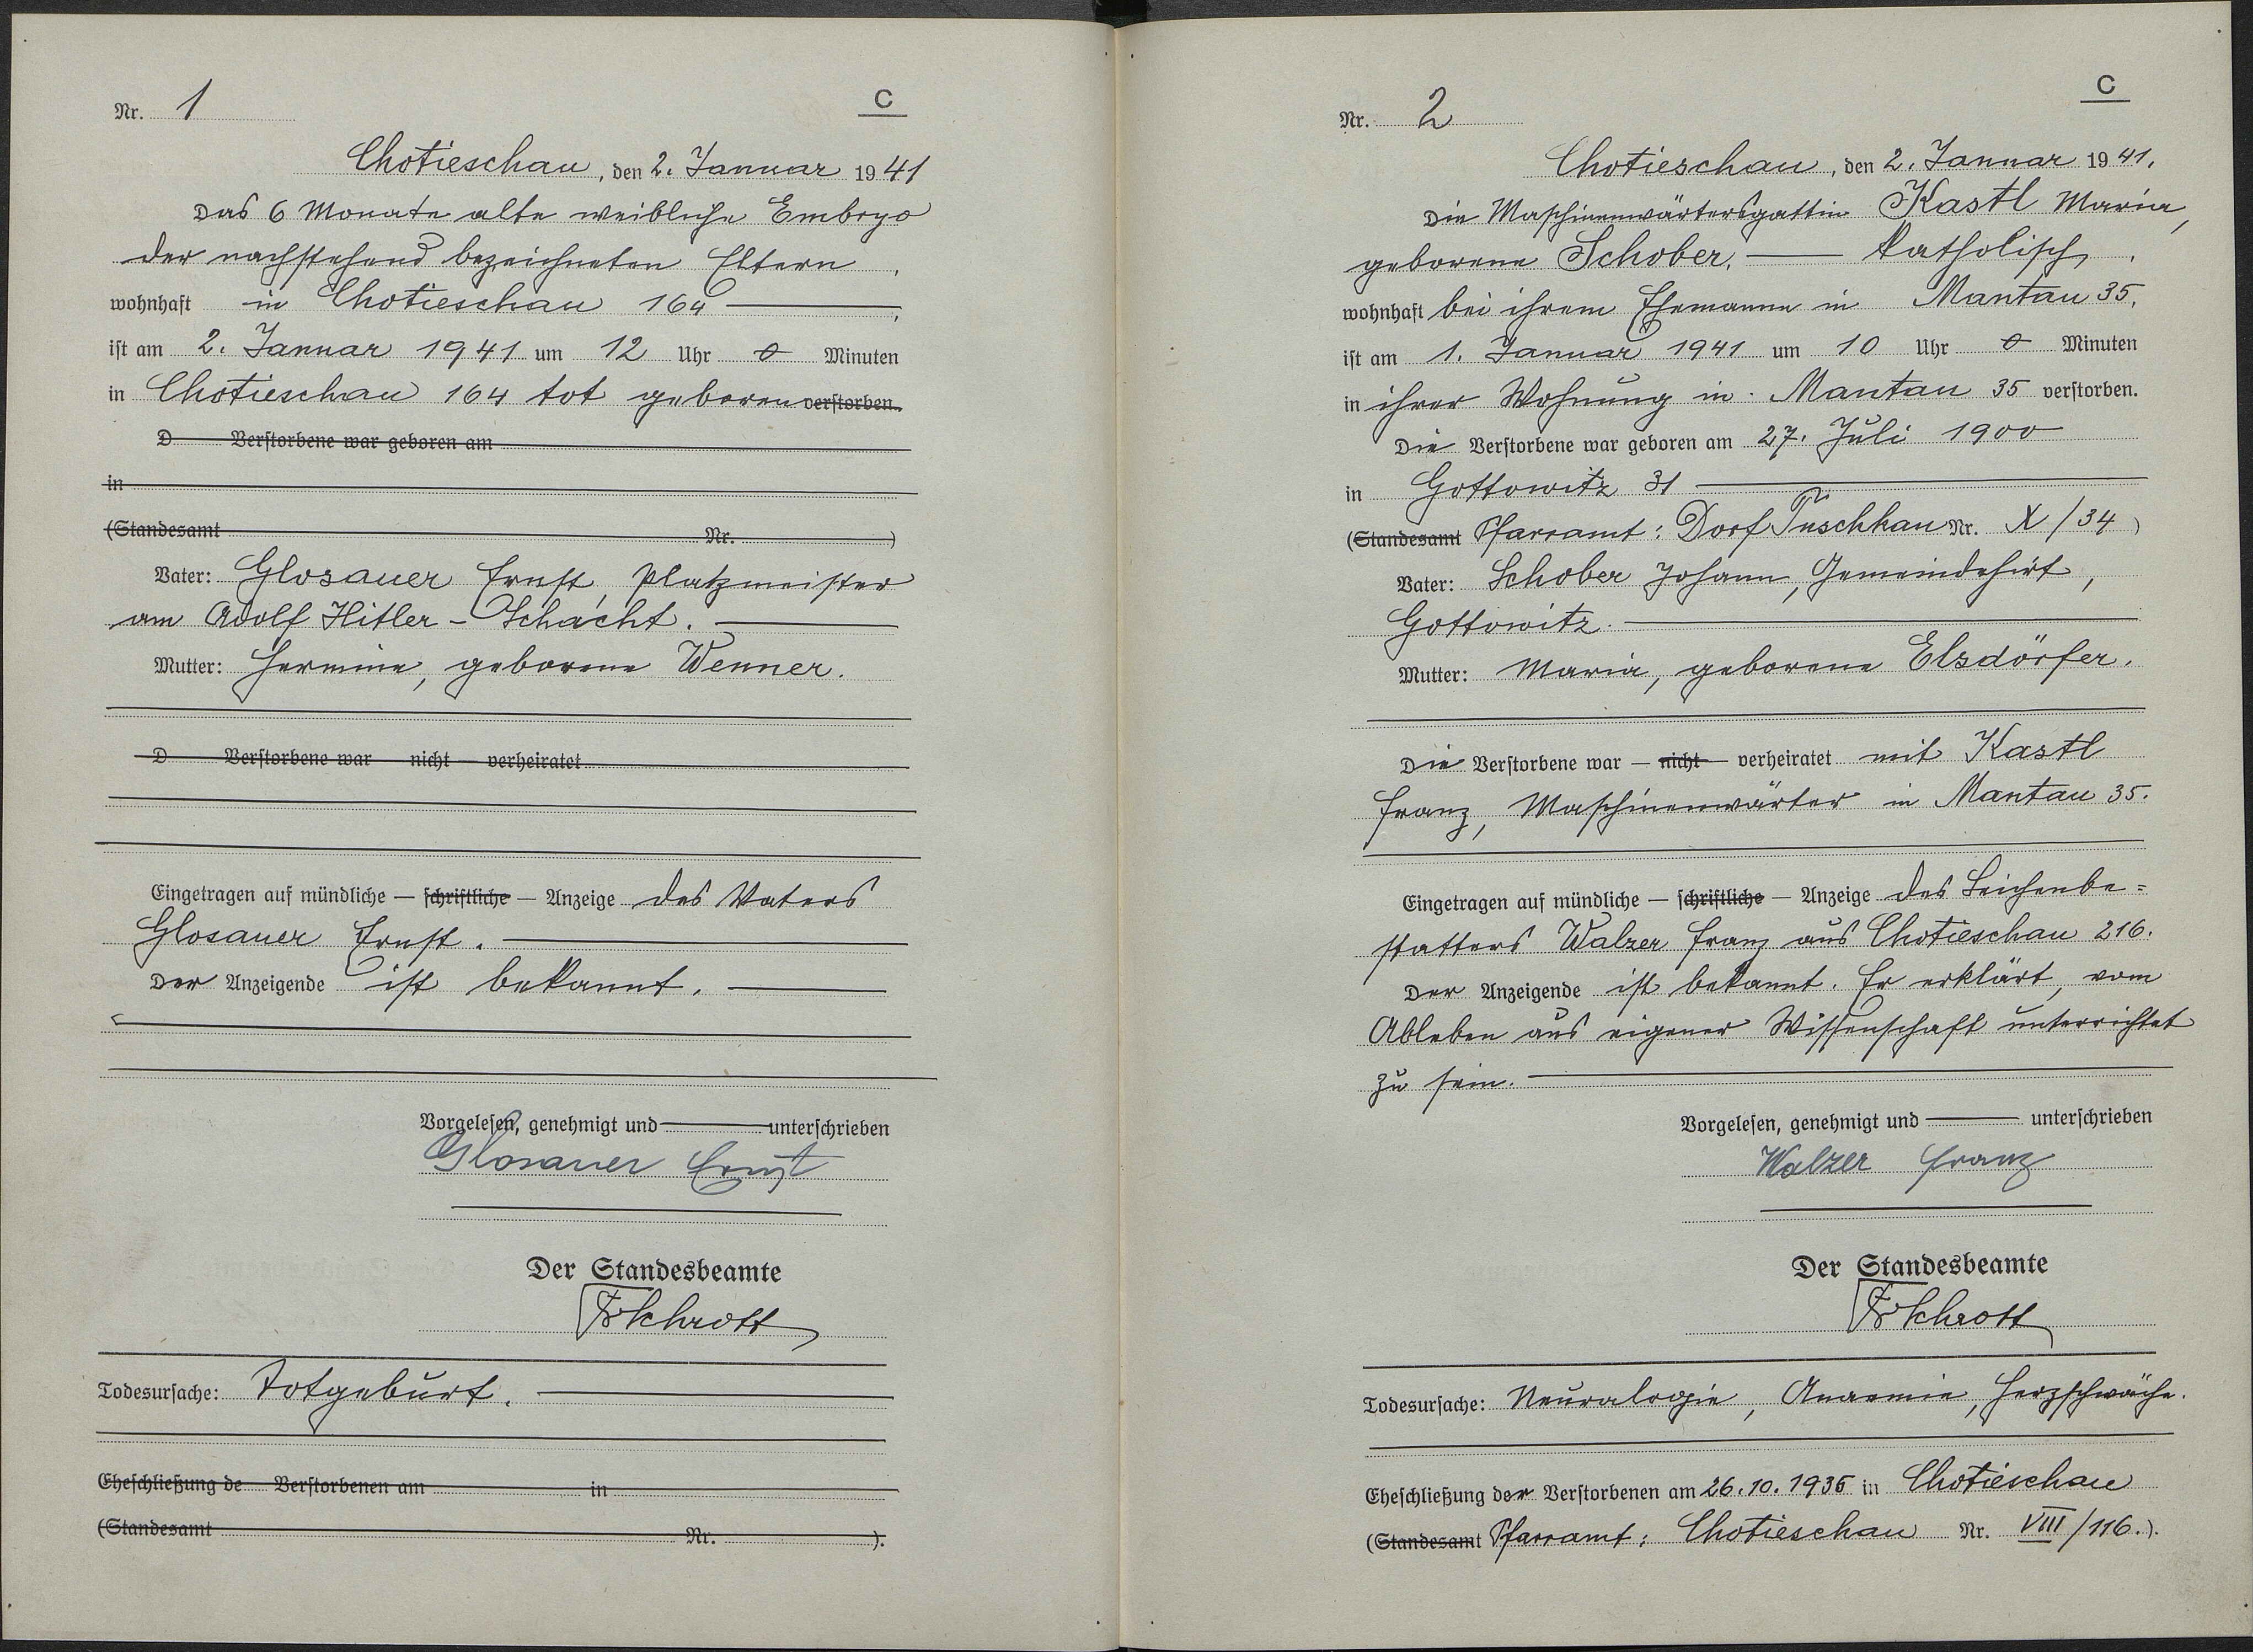 Nr. 1
C
Chotieschau, den 2. Januar 1941
Das 6 Monate alte weibliche Embryo
der nachstehend bezeichneten Eltern,
wohnhaft in Chotieschau 164
ist am 2. Januar 1941 um 12 Uhr 0 Minuten
in Chotieschau 164 tot geboren verstorben.
D Verstorbene war geboren am
in
(Standesamt Nr. )
Vater: Glosauer Ernst, Platzmeister
am Adolf Hitler-Schacht.
Mutter: Hermine, geborene Wenner.
D Verstorbene war nicht verheiratet
Eingetragen auf mündliche — schriftliche — Anzeige des Vaters
Glosauer Ernst.
Der Anzeigende ist bekannt.
Vorgelesen, genehmigt und unterschrieben
Glosauer Ernst
Der Standesbeamte
Todesursache: Totgeburt.
Eheschließung de Verstorbenen am in
(Standesamt Nr. ).
Nr. 2
C
Chotieschau, den 2. Januar 1941.
Die Maschinenwärtersgattin Kastl Maria,
geborene Schober. — katholisch,
wohnhaft bei ihrem Ehemanne in Mantau 35,
ist am 1. Januar 1941 um 10 Uhr 0 Minuten
in ihrer Wohnung in Mantau 35 verstorben.
Die Verstorbene war geboren am 27. Juli 1900
in Gottowitz 31
(Standesamt Pfarramt: Dorf Tuschkau Nr. X/34)
Vater: Schober Johann, Gemeindehirt,
Gottowitz.
Mutter: Maria, geborene Elsdörfer.
Die Verstorbene war — nicht — verheiratet mit Kastl
Franz, Maschinenwärter in Mantau 35.
Eingetragen auf mündliche — schriftliche — Anzeige des Leichenbe=
statters Walzer Franz aus Chotieschau 216.
Der Anzeigende ist bekannt. Er erklärt, vom
Ableben aus eigener Wissenschaft unterrichtet
zu sein.
Vorgelesen, genehmigt und unterschrieben
Walzer Franz
Der Standesbeamte
Todesursache: Neuralogie, Anaemie, Herzschwäche.
Eheschließung der Verstorbenen am 26.10.1935 in Chotieschau
(Standesamt Pfarramt: Chotieschau Nr. VIII/116.).